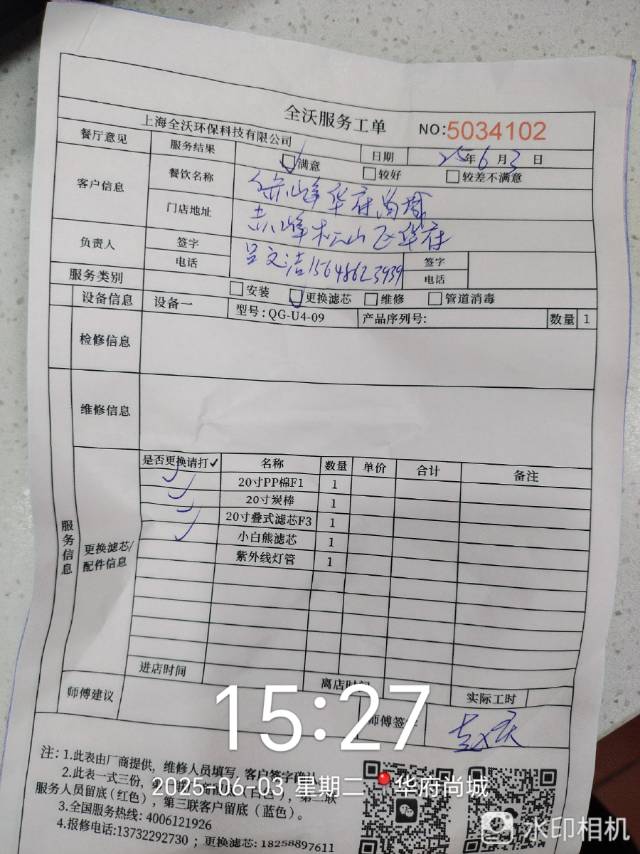 全沃服务工单
NO:5034102
上海全沃环保科技有限公司
日期 25年6月3日
餐厅意见 服务结果 满意 较好 较差不满意
客户信息 餐饮名称 赤峰华府尚城
门店地址 赤峰松山区华府
负责人 签字 吕文洁 签字
电话 15648623939 电话
服务类别 安装 更换滤芯 维修 管道消毒
设备信息 设备一 型号:QG-U4-09 产品序列号: 数量 1
检修信息
维修信息
服务信息
更换滤芯/配件信息
是否更换请打✓ 名称 数量 单价 合计 备注
✓ 20寸PP棉F1 1
✓ 20寸炭棒 1
✓ 20寸叠式滤芯F3 1
✓ 小白熊滤芯 1
紫外线灯管 1
进店时间 离店时间 实际工时
师傅建议 师傅签
15:27
2025-06-03 星期二 华府尚城
注: 1.此表由厂商提供, 维修人员填写, 客户签字确认
2.此表一式三份,
服务人员留底(红色), 第三联客户留底(蓝色)。
3.全国服务热线: 4006121926
4.报修电话:13732292730; 更换滤芯: 18258897611
水印相机